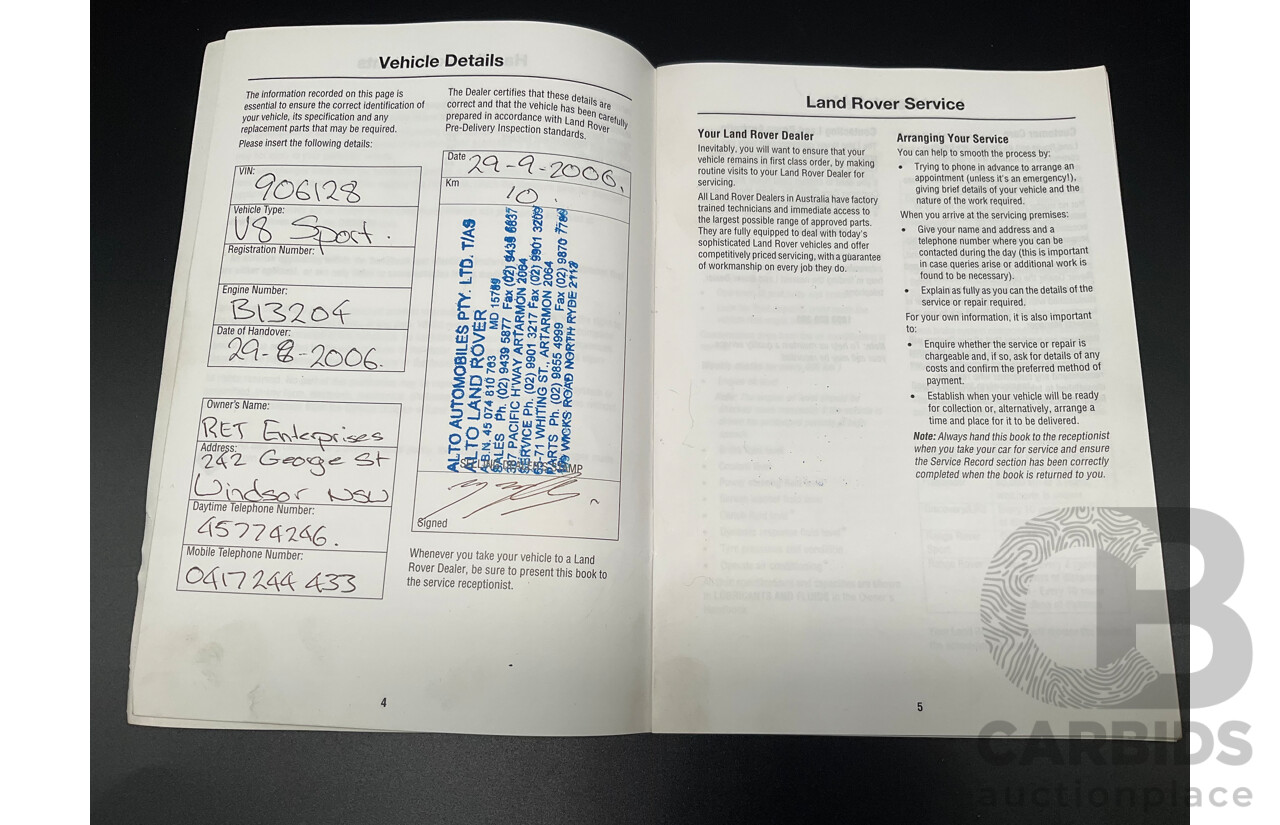 Vehicle Details
The information recorded on this page is
essential to ensure the correct identification of
your vehicle, its specification and any
replacement parts that may be required.
Please insert the following details:
VIN:
906128
Vehicle Type:
V8 Sport.
Registration Number:
Engine Number:
B13204
Date of Handover:
29-8-2006.
Owner's Name:
RET Enterprises
Address:
242 George St
Windsor NSW
Daytime Telephone Number:
45774246.
Mobile Telephone Number:
0417 244 433
The Dealer certifies that these details are
correct and that the vehicle has been carefully
prepared in accordance with Land Rover
Pre-Delivery Inspection standards.
Date 29-9-2006.
Km
10.
ALTO AUTOMOBILES PTY. LTD. T/AS
ALTO LAND ROVER
A.B.N. 45 074 810 763 MD 15789
SALES Ph. (02) 9439 5877 Fax (02) 9439 6637
PACIFIC H'WAY ARTARMON 2064
SERVICE Ph. (02) 9901 3217 Fax (02) 9901 3209
WHITING ST., ARTARMON 2064
PARTS Ph. (02) 9855 4999 Fax (02) 9870 7789
WICKS ROAD NORTH RYDE 2113
Signed
Whenever you take your vehicle to a Land
Rover Dealer, be sure to present this book to
the service receptionist.
4
Land Rover Service
Your Land Rover Dealer
Inevitably, you will want to ensure that your
vehicle remains in first class order, by making
routine visits to your Land Rover Dealer for
servicing.
All Land Rover Dealers in Australia have factory
trained technicians and immediate access to
the largest possible range of approved parts.
They are fully equipped to deal with today's
sophisticated Land Rover vehicles and offer
competitively priced servicing, with a guarantee
of workmanship on every job they do.
Arranging Your Service
You can help to smooth the process by:
• Trying to phone in advance to arrange an
appointment (unless it's an emergency!),
giving brief details of your vehicle and the
nature of the work required.
When you arrive at the servicing premises:
• Give your name and address and a
telephone number where you can be
contacted during the day (this is important
in case queries arise or additional work is
found to be necessary).
• Explain as fully as you can the details of the
service or repair required.
For your own information, it is also important
to:
• Enquire whether the service or repair is
chargeable and, if so, ask for details of any
costs and confirm the preferred method of
payment.
• Establish when your vehicle will be ready
for collection or, alternatively, arrange a
time and place for it to be delivered.
Note: Always hand this book to the receptionist
when you take your car for service and ensure
the Service Record section has been correctly
completed when the book is returned to you.
5
CB
CARBIDS
auctionplace